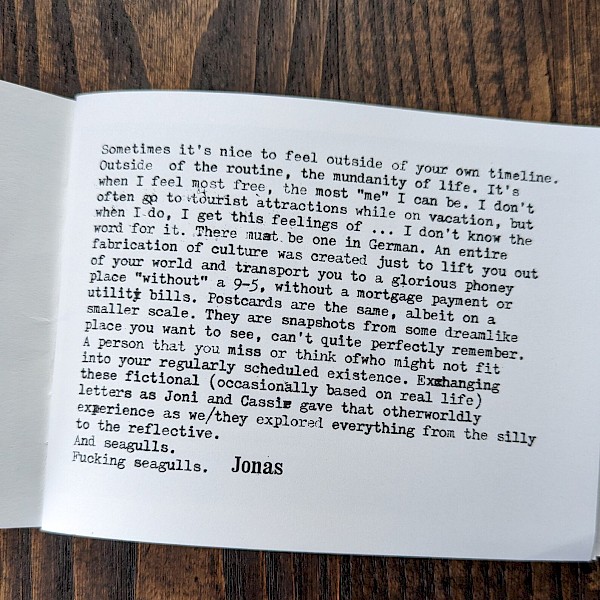 Sometimes it's nice to feel outside of your own timeline.
Outside of the routine, the mundanity of life. It's
when I feel most free, the most "me" I can be. I don't
often go to tourist attractions while on vacation, but
when I do, I get this feelings of ... I don't know the
word for it. There must be one in German. An entire
fabrication of culture was created just to lift you out
of your world and transport you to a glorious phoney
place "without" a 9-5, without a mortgage payment or
utility bills. Postcards are the same, albeit on a
smaller scale. They are snapshots from some dreamlike
place you want to see, can't quite perfectly remember.
A person that you miss or think ofwho might not fit
into your regularly scheduled existence. Exchanging
these fictional (occasionally based on real life)
letters as Joni and Cassie gave that otherworldly
experience as we/they explored everything from the silly
to the reflective.
And seagulls.
Fucking seagulls. Jonas